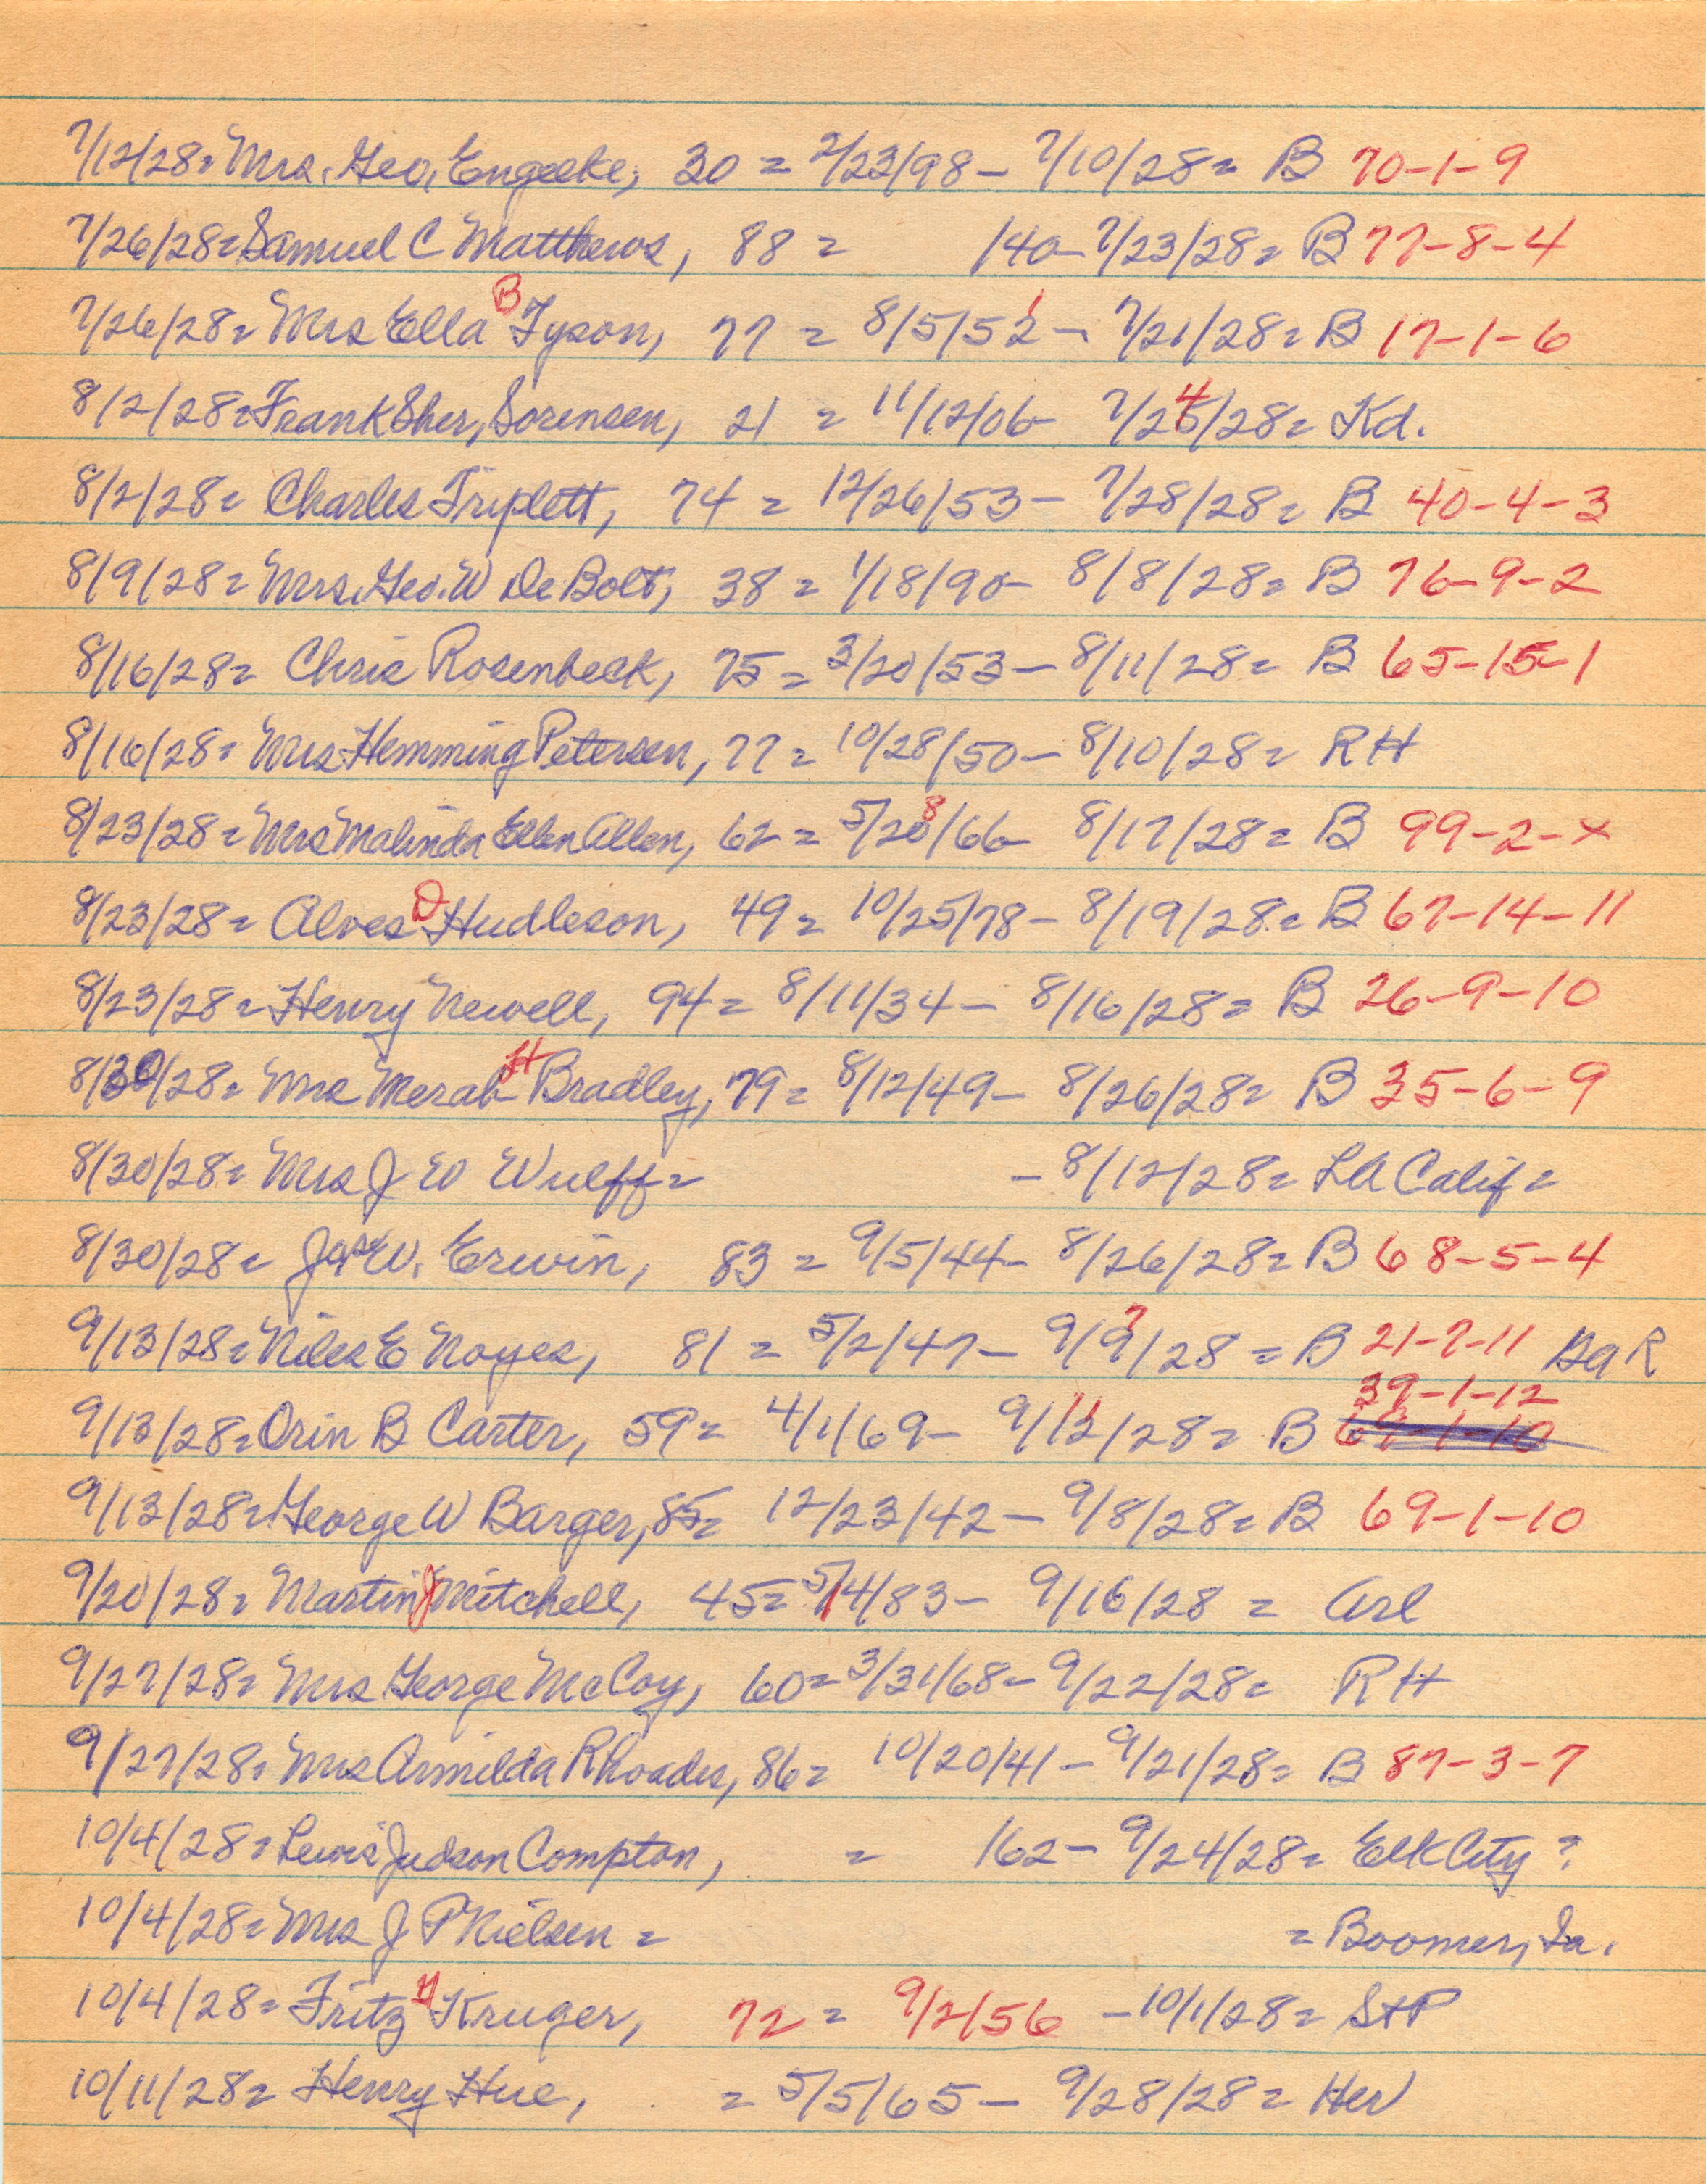 7/12/28= Mrs. Geo. Engelke, 30 = 2/23/98 - 7/10/28= B 70-1-9
7/26/28= Samuel C Matthews, 88 = 140- 7/23/28= B 77-8-4
7/26/28= Mrs Ella B Tyson, 77 = 8/5/52 1 - 7/21/28= B 17-1-6
8/2/28= Frank Sher, Sorensen, 21 = 11/12/06- 7/25 4/28= Kd.
8/2/28= Charles Triplett, 74 = 12/26/53- 7/28/28= B 40-4-3
8/9/28= Mrs. Geo. W DeBolt, 38 = 1/18/90- 8/8/28= B 76-9-2
8/16/28= Chris Rosenbeck, 75 = 3/20/53- 8/11/28= B 65-15-1
8/16/28= Mrs Hemming Petersen, 77= 10/28/50- 8/10/28= RH
8/23/28= Mrs Malinda Ellen Allen, 62 = 5/20 8/66- 8/17/28= B 99-2-x
8/23/28= Alves D Hudleson, 49= 10/25/78- 8/19/28= B 67-14-11
8/23/28= Henry Newell, 94= 8/11/34- 8/16/28= B 26-9-10
8/30/28= Mrs Merab H Bradley, 79= 8/12/49- 8/26/28= B 35-6-9
8/30/28= Mrs J W Wulff= - 8/12/28= LA Calif=
8/30/28= Jas W. Erwin, 83 = 9/5/44- 8/26/28= B 68-5-4
9/13/28= Niles E Noyes, 81 = 5/2/47- 9/9 7/28 = B 21-7-11 GAR
39-1-12
9/13/28= Orin B Carter, 59= 4/1/69- 9/11/28= B 69-1-10
9/13/28= George W Barger, 85= 12/23/42- 9/8/28= B 69-1-10
9/20/28= Martin J Mitchell, 45= 5/4/83- 9/16/28 = Arl
9/27/28= Mrs George McCoy, 60= 3/31/68- 9/22/28= RH
9/27/28= Mrs Armilda Rhoades, 86= 10/20/41- 9/21/28= B 87-3-7
10/4/28= Lewis Judson Compton, = 162- 9/24/28= Elk City?
10/4/28= Mrs J P Nielsen = = Boomer, Ia.
10/4/28= Fritz H Kruger, 72 = 9/2/56 -10/1/28= StP
10/11/28= Henry Hue, = 5/5/65- 9/28/28= Her